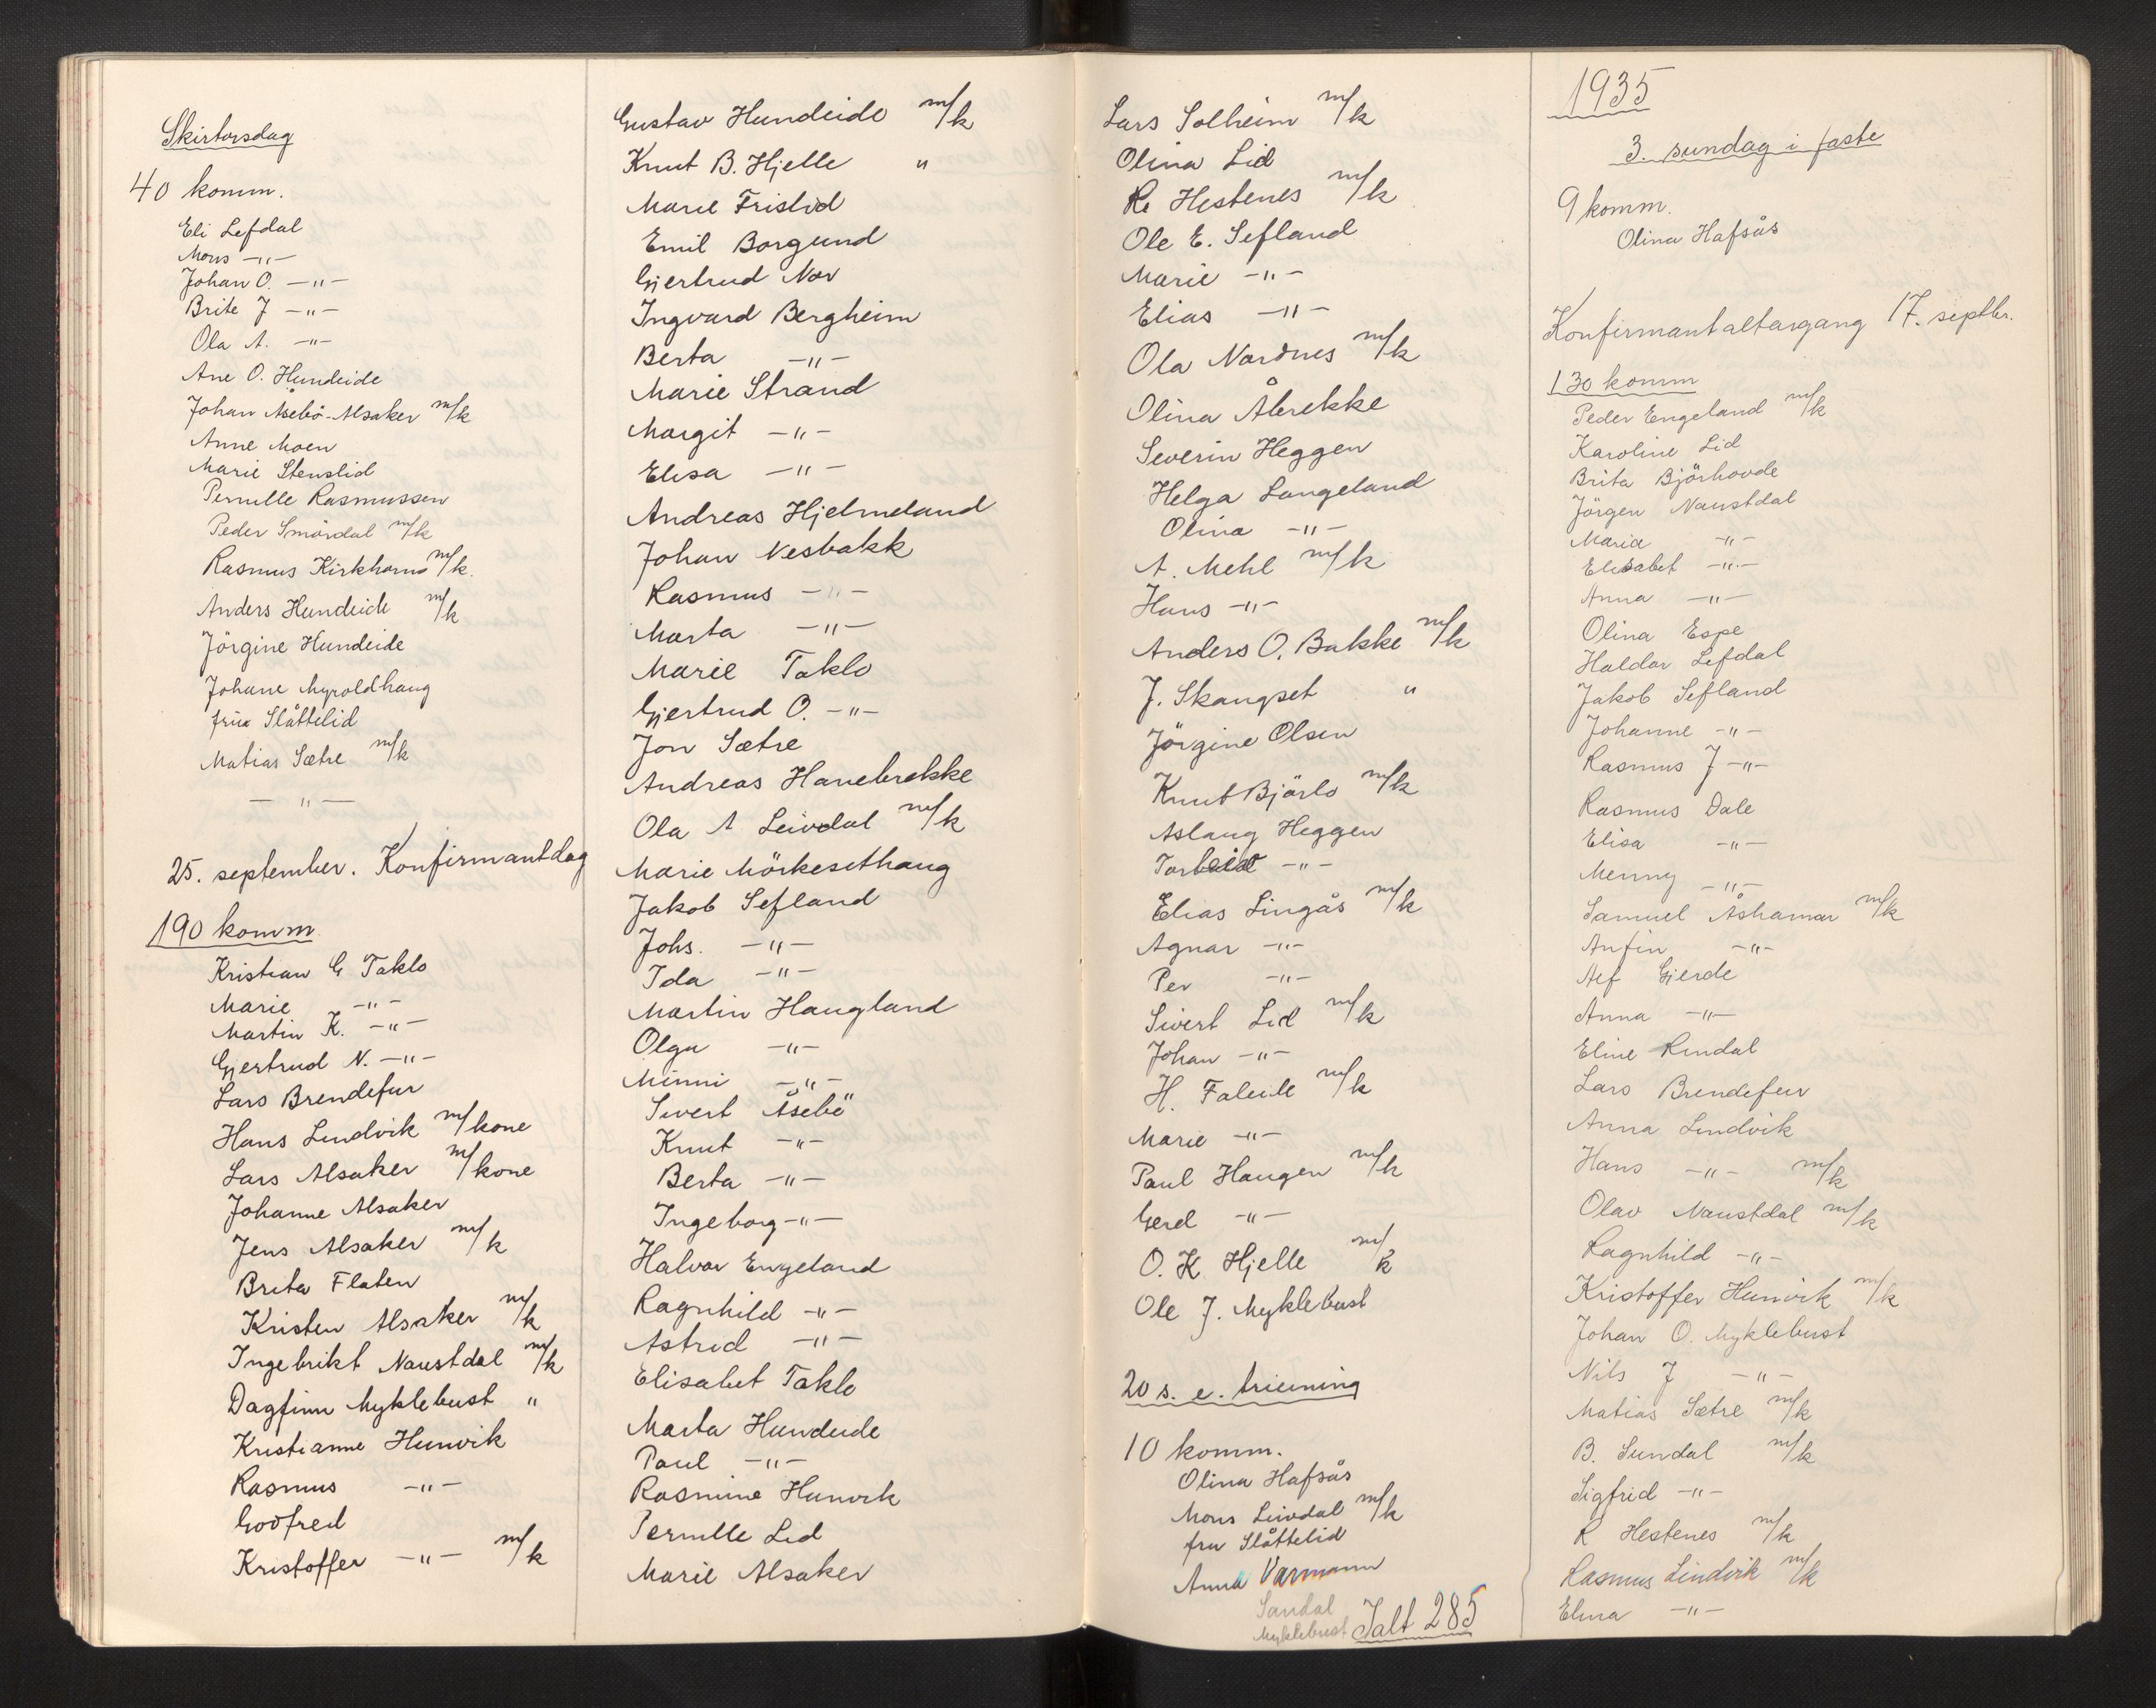 Skirtorsdag
40 komm.
Eli Lefdal
Mons -"-
Johan O. -"-
Brite J -"-
Ola A. -"-
Ane O. Hundeide
Johan Åsebö-Alsaker m/k
Anne Moen
Marie Stenslid
Pernille Rasmussen
Peder Smördal m/k
Rasmus Kirkhorns m/k.
Anders Hundeide m/k
Jörgine Hundeide
Johane Myroldhaug
frua Slåttelid
Matias Sætre m/k
- " -
25. september. Konfirmantdag
190 komm
Kristian G Taklo
Marie -"-
Martin K. -"-
Gjertrud N. -"-
Lars Brendefur
Hans Lindvik m/kone
Lars Alsaker m/kone
Johanne Alsaker
Jens Alsaker m/k
Brita Flaten
Kristen Alsaker m/k
Ingebrikt Naustdal m/k
Dagfinn Myklebust "
Kristianne Hunvik
Rasmus -"-
Godfred
Kristoffer -"- m/k
Gustav Hundeide m/k
Knut B. Hjelle "
Marie Fristid
Emil Borgund
Gjertrud Nor
Ingvard Bergheim
Berta -"-
Marie Strand
Margit -"-
Elisa -"-
Andreas Hjelmeland
Johan Nesbakk
Rasmus -"-
Marta -"-
Marie Taklo
Gjertrud O. -"-
Jon Sætre
Andreas Hanebrekke
Ola A Leivdal m/k
Marie Mörkesethaug
Jakob Sefland
Johs. -"-
Ida -"-
Martin Haugland
Olga -"-
Minni -"-
Sivert Åsebö
Knut -"-
Berta -"-
Ingeborg -"-
Halvor Engeland
Ragnhild -"-
Astrid -"-
Elisabet Taklo
Marta Hundeide
Paul -"-
Rasmine Hunvik
Pernille Lid
Marie Alsaker
Lars Solheim m/k
Olina Lid
R. Hestenes m/k
Ole E. Sefland
Marie -"-
Elias -"-
Ola Nordnes m/k
Olina Åbrekke
Severin Heggen
Helga Langeland
Olina -"-
A. Mehl m/k
Hans -"-
Anders O. Bakke m/k
J. Skangset "
Jörgine Olsen
Knut Bjärlo m/k
Aslaug Heggen
-"-
Elias Lingås m/k
Agnar -"-
Per -"-
Sivert Lid m/k
Johan -"-
H. Faleide m/k
Marie -"-
Paul Haugen m/k
Gerd -"-
O. K Hjelle m/k
Ole J. Myklebust
20 s. e. trieining
10 komm.
Olina Hafsås
Mons Leivdal m/k
fru Slåttelid
Anna Varmann
Sandal
Myklebust
Ialt 285
1935
3. sundag i faste
9 komm.
Olina Hafsås
Konfirmantaltargang 17. septbr.
130 komm
Peder Engeland m/k
Karoline Lid
Brita Björhovde
Jörgen Naustdal
Maria -"-
Elisabet -"-
Anna -"-
Olina Espe
Haldor Lefdal
Jakob Sefland
Johanne -"-
Rasmus J -"-
Rasmus Dale
Elisa -"-
Menny -"-
Samuel Åshamar m/k
Anfin -"-
Alf Gjerde
Anna -"-
Eline Rindal
Lars Brendefur
Anna Lindvik
Hans -"- m/k
Olav Naustdal m/k
Ragnhild -"-
Kristoffer Hunvik m/k
Johan O. Myklebust
Nils J -"-
Matias Sætre m/k
B. Sundal m/k
Sigfrid -"-
R Hestenes m/k
Rasmus Lindvik m/k
Elina -"-